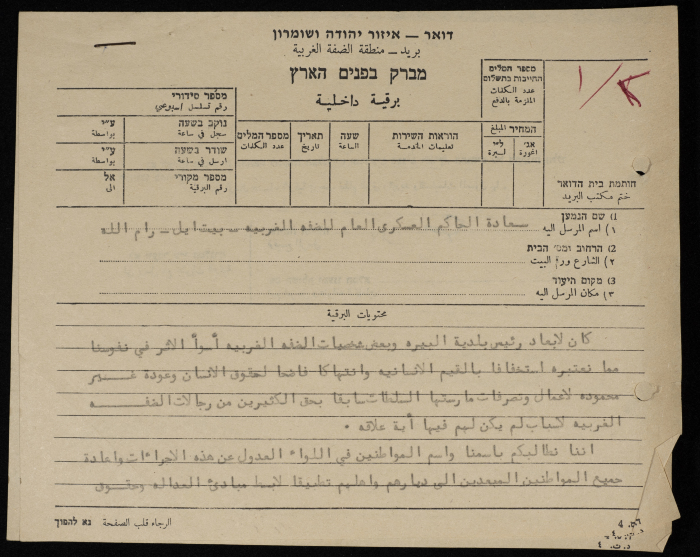 דואר – איזור יהודה ושומרון
بريد – منطقة الضفة الغربية
מברק בפנים הארץ
برقية داخلية
מספר המלים
החייבות בתשלום
عدد الكلمات
الملزمة بالدفع
המחיר המבלغ
אג׳
اغورة
ל״י
ليرة
הוראות השירות
تعليمات الخدمة
שעה
الساعة
תאריך
تاريخ
מספר המלים
عدد الكلمات
מספר סידורי
رقم تسلسل اسبوعي
נוקב בשעה
سجل في ساعة
ע״י
بواسطة
שודר בשעה
ارسل في ساعة
ע״י
بواسطة
מספר מקורי
رقم البرقية
אל
الى
חותמת בית הדואר
ختم مكتب البريد
1) שם הנמען
١) اسم المرسل اليه سعادة الحاكم العسكري العام للضفه الغربيه – بيت ايل – رام الله
2) הרחוב ומס׳ הבית
٢) الشارع ورقم البيت
3) מקום היעוד
٣) مكان المرسل اليه
محتويات البرقية
كان لابعاد رئيس بلدية البيره وبعض شخصيات الضفه الغربيه أسوأ الاثر في نفوسنا
مما نعتبره استخفافا بالقيم الانسانيه وانتهاكا فاضحا لحقوق الانسان وعودة غير
محموده لاعمال وتصرفات مارستها السلطات سابقا بحق الكثيرين من رجالات الضفه
الغربيه لاسباب لم يكن لهم فيها أية علاقه .
اننا نطالبكم باسمنا واسم المواطنين في اللواء العدول عن هذه الاجراءات واعادة
جميع المواطنين المبعدين الى ديارهم واهليهم تطبيقا لابسط مبادئ العداله وحقوق
נא להפוך الرجاء قلب الصفحة